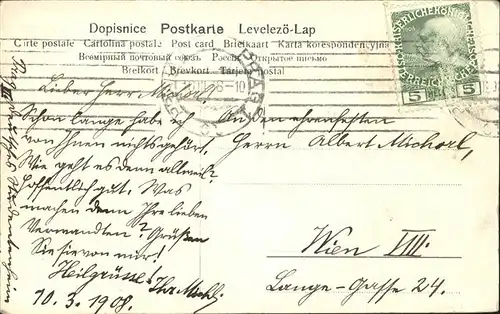 Dopisnice Postkarte Levelező-Lap
Carte postale Cartolina postale Post card Briefkaart Karta korespondencyjna
Всемірный почтовый союзъ Россія Открытое письмо
Brefkort Brevkort Tarjeta postal
KAISERLICHE KÖNIGLICHE
5 5
PRAG
Lieber Herr
Schon lange habe ich
von Ihnen nichts gehört.
Wie geht es denn allweil?
Hoffentlich gut. Was
machen denn Ihre lieben
Verwandten? Grüßen
Sie sie von mir!
Heilgrüsse Ihr
10.3.1908.
An den ehrenfesten
Herrn Albert Michorl,
Wien VIII.
Lange-Gasse 24.